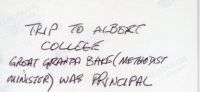 TRIP TO ALBERT
COLLEGE
GREAT GRANPA BAKE (METHODIST
MINISTER) WAS PRINCIPAL